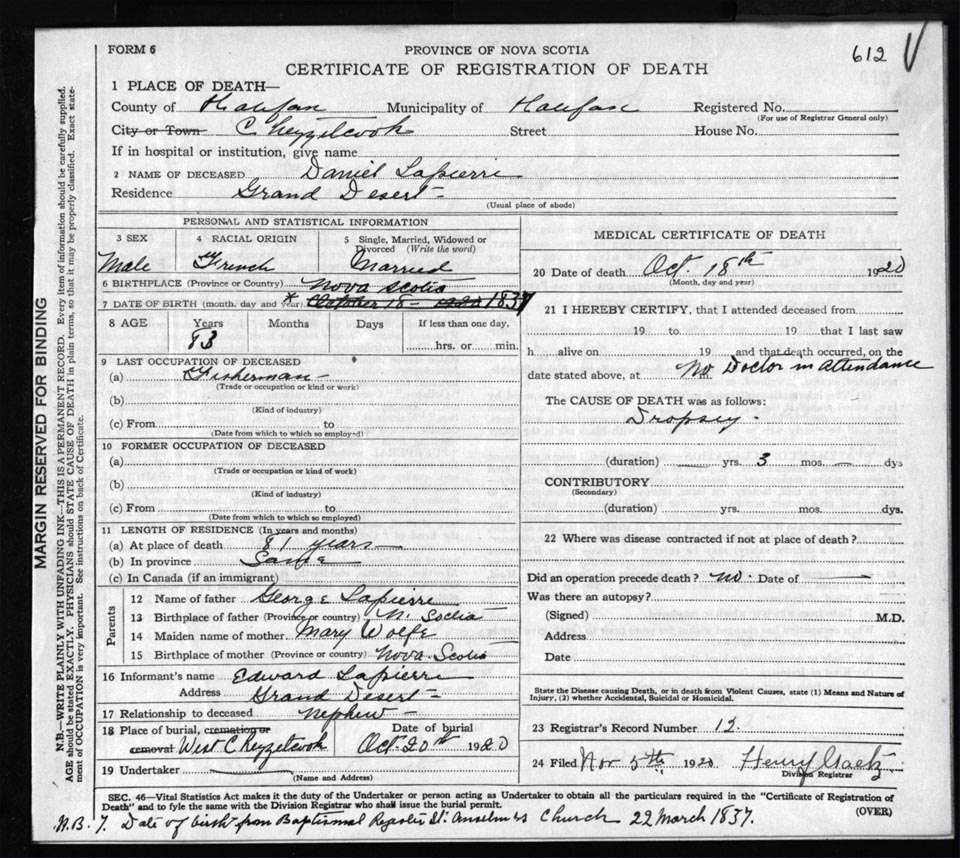 FORM 6
PROVINCE OF NOVA SCOTIA
612 V
CERTIFICATE OF REGISTRATION OF DEATH
1 PLACE OF DEATH—
County of Halifax Municipality of Halifax Registered No.
(For use of Registrar General only)
City or Town Chezzetcook Street House No.
If in hospital or institution, give name
2 NAME OF DECEASED Daniel Lapierre
Residence Grand Desert -
(Usual place of abode)
PERSONAL AND STATISTICAL INFORMATION
3 SEX 4 RACIAL ORIGIN 5 Single, Married, Widowed or Divorced (Write the word)
Male French Married
6 BIRTHPLACE (Province or Country) Nova Scotia
7 DATE OF BIRTH (month, day and year) * October 18 - 1920 1837
8 AGE Years Months Days If less than one day,
83 hrs. or min.
9 LAST OCCUPATION OF DECEASED
(a) Fisherman -
(Trade or occupation or kind of work)
(b)
(Kind of industry)
(c) From to
(Date from which to which so employed)
10 FORMER OCCUPATION OF DECEASED
(a)
(Trade or occupation or kind of work)
(b)
(Kind of industry)
(c) From to
(Date from which to which so employed)
11 LENGTH OF RESIDENCE (In years and months)
(a) At place of death 81 years
(b) In province Same
(c) In Canada (if an immigrant)
Parents
12 Name of father George Lapierre
13 Birthplace of father (Province or country) N. Scotia
14 Maiden name of mother Mary Wolfe
15 Birthplace of mother (Province or country) Nova Scotia
16 Informant's name Edward Lapierre
Address Grand Desert -
17 Relationship to deceased nephew -
18 Place of burial, cremation or Date of burial
removal West Chezzetcook Oct. 20th 1920
19 Undertaker
(Name and Address)
MEDICAL CERTIFICATE OF DEATH
20 Date of death Oct. 18th 1920
(Month, day and year)
21 I HEREBY CERTIFY, that I attended deceased from
19 to 19 that I last saw
h alive on 19 and that death occurred, on the
date stated above, at m. No Doctor in Attendance
The CAUSE OF DEATH was as follows:
Dropsey -
(duration) — yrs. 3 mos. — dys
CONTRIBUTORY
(Secondary)
(duration) yrs. mos. dys.
22 Where was disease contracted if not at place of death?
Did an operation precede death? no. Date of —
Was there an autopsy?
(Signed) M.D.
Address
Date
State the Disease causing Death, or in death from Violent Causes, state (1) Means and Nature of
Injury, (2) whether Accidental, Suicidal or Homicidal.
23 Registrar's Record Number 12.
24 Filed Nov 5th 1920 Henry Gaetz
Division Registrar
SEC. 46—Vital Statistics Act makes it the duty of the Undertaker or person acting as Undertaker to obtain all the particulars required in the "Certificate of Registration of
Death" and to fyle the same with the Division Registrar who shall issue the burial permit.
(OVER)
N.B. 7. Date of birth from Baptismal Register St. Anselm's Church 22 March 1837.
MARGIN RESERVED FOR BINDING
N.B.—WRITE PLAINLY WITH UNFADING INK—THIS IS A PERMANENT RECORD. Every item of information should be carefully supplied.
AGE should be stated EXACTLY. PHYSICIANS should STATE CAUSE OF DEATH in plain terms, so that it may be properly classified. Exact state-
ment of OCCUPATION is very important. See instructions on back of Certificate.